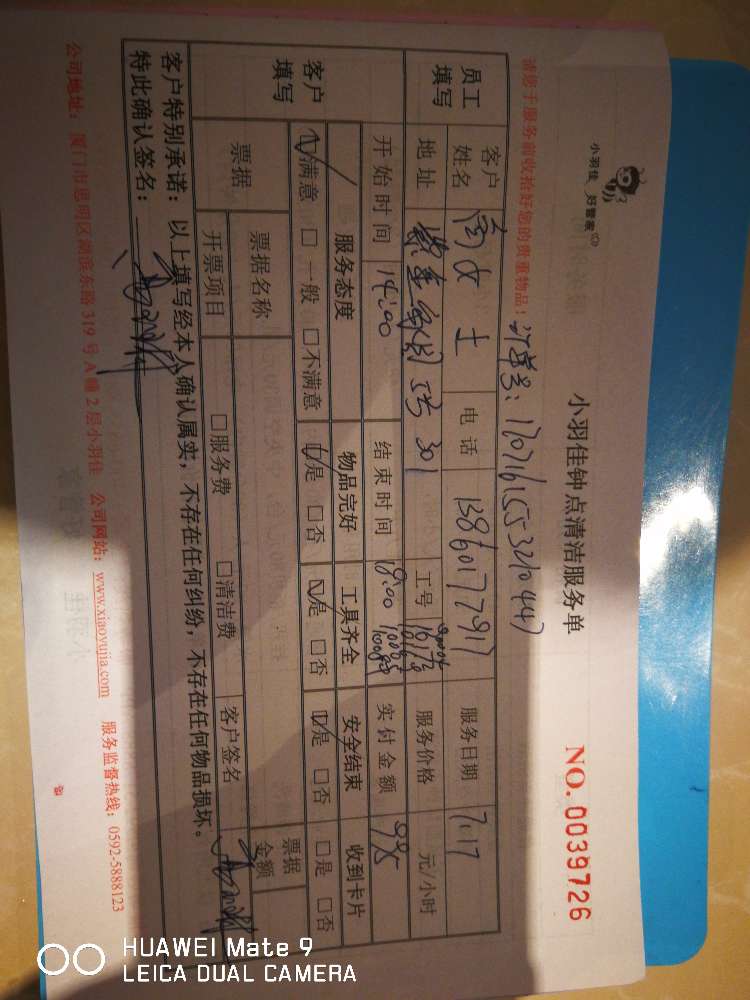 小羽佳 好管家
小羽佳钟点清洁服务单
NO. 0039726
请您于服务前收拾好您的贵重物品!
员工填写
客户姓名 高女士 电话 13860177917 服务日期 7.17
地址 301 工号 服务价格 元/小时
开始时间 14:00 结束时间 18:00 实付金额
客户填写
服务态度 物品完好 工具齐全 安全结束 收到卡片
☑满意 □一般 □不满意 ☑是 □否 ☑是 □否 ☑是 □否 □是 □否
票据 票据名称 客户签名 票据金额
开票项目 □服务费 □清洁费
客户特别承诺:以上填写经本人确认属实,不存在任何纠纷,不存在任何物品损坏。
特此确认签名:
公司地址:厦门市思明区湖滨东路319号A幢2层小羽佳 公司网站:www.xiaoyujia.com 服务监督热线:0592-5888123
HUAWEI Mate 9
LEICA DUAL CAMERA